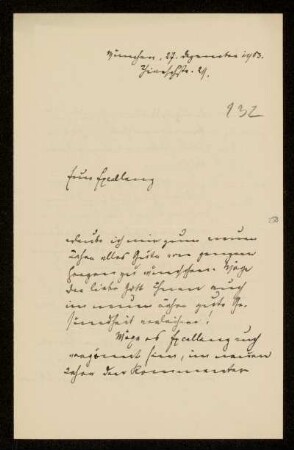 München, 27. Dezember 1913.
Hiltensp.str. 21.
132
Eurer Exzellenz
erlaube ich mir zum neuen
Jahre alles Gute von ganzem
Herzen zu wünschen. Möge
der liebe Gott Ihnen auch
im neuen Jahre gute Ge-
sundheit verleihen!
Möge es Exzellenz auch
vergönnt sein, im neuen
Jahre den Kommentar